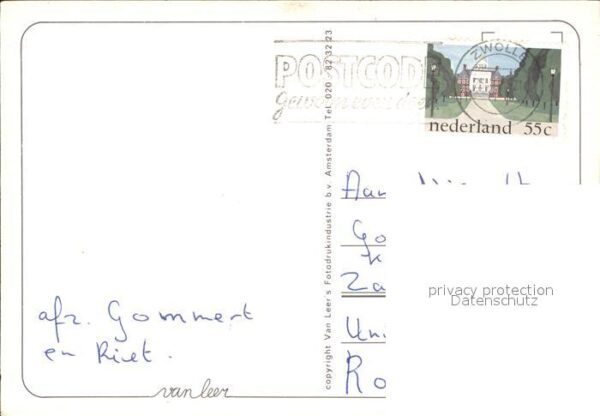 ZWOLLE
POSTCODE
nederland 55c
copyright Van Leer's Fotodrukindustrie b.v. Amsterdam Tel. 020 - 82 32 23
Aan
Go
K
Za
Uni
Ro
privacy protection
Datenschutz
afz. Gommert
en Riet.
van leer